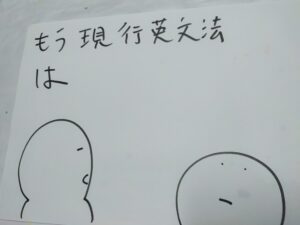 もう現行英文法
は